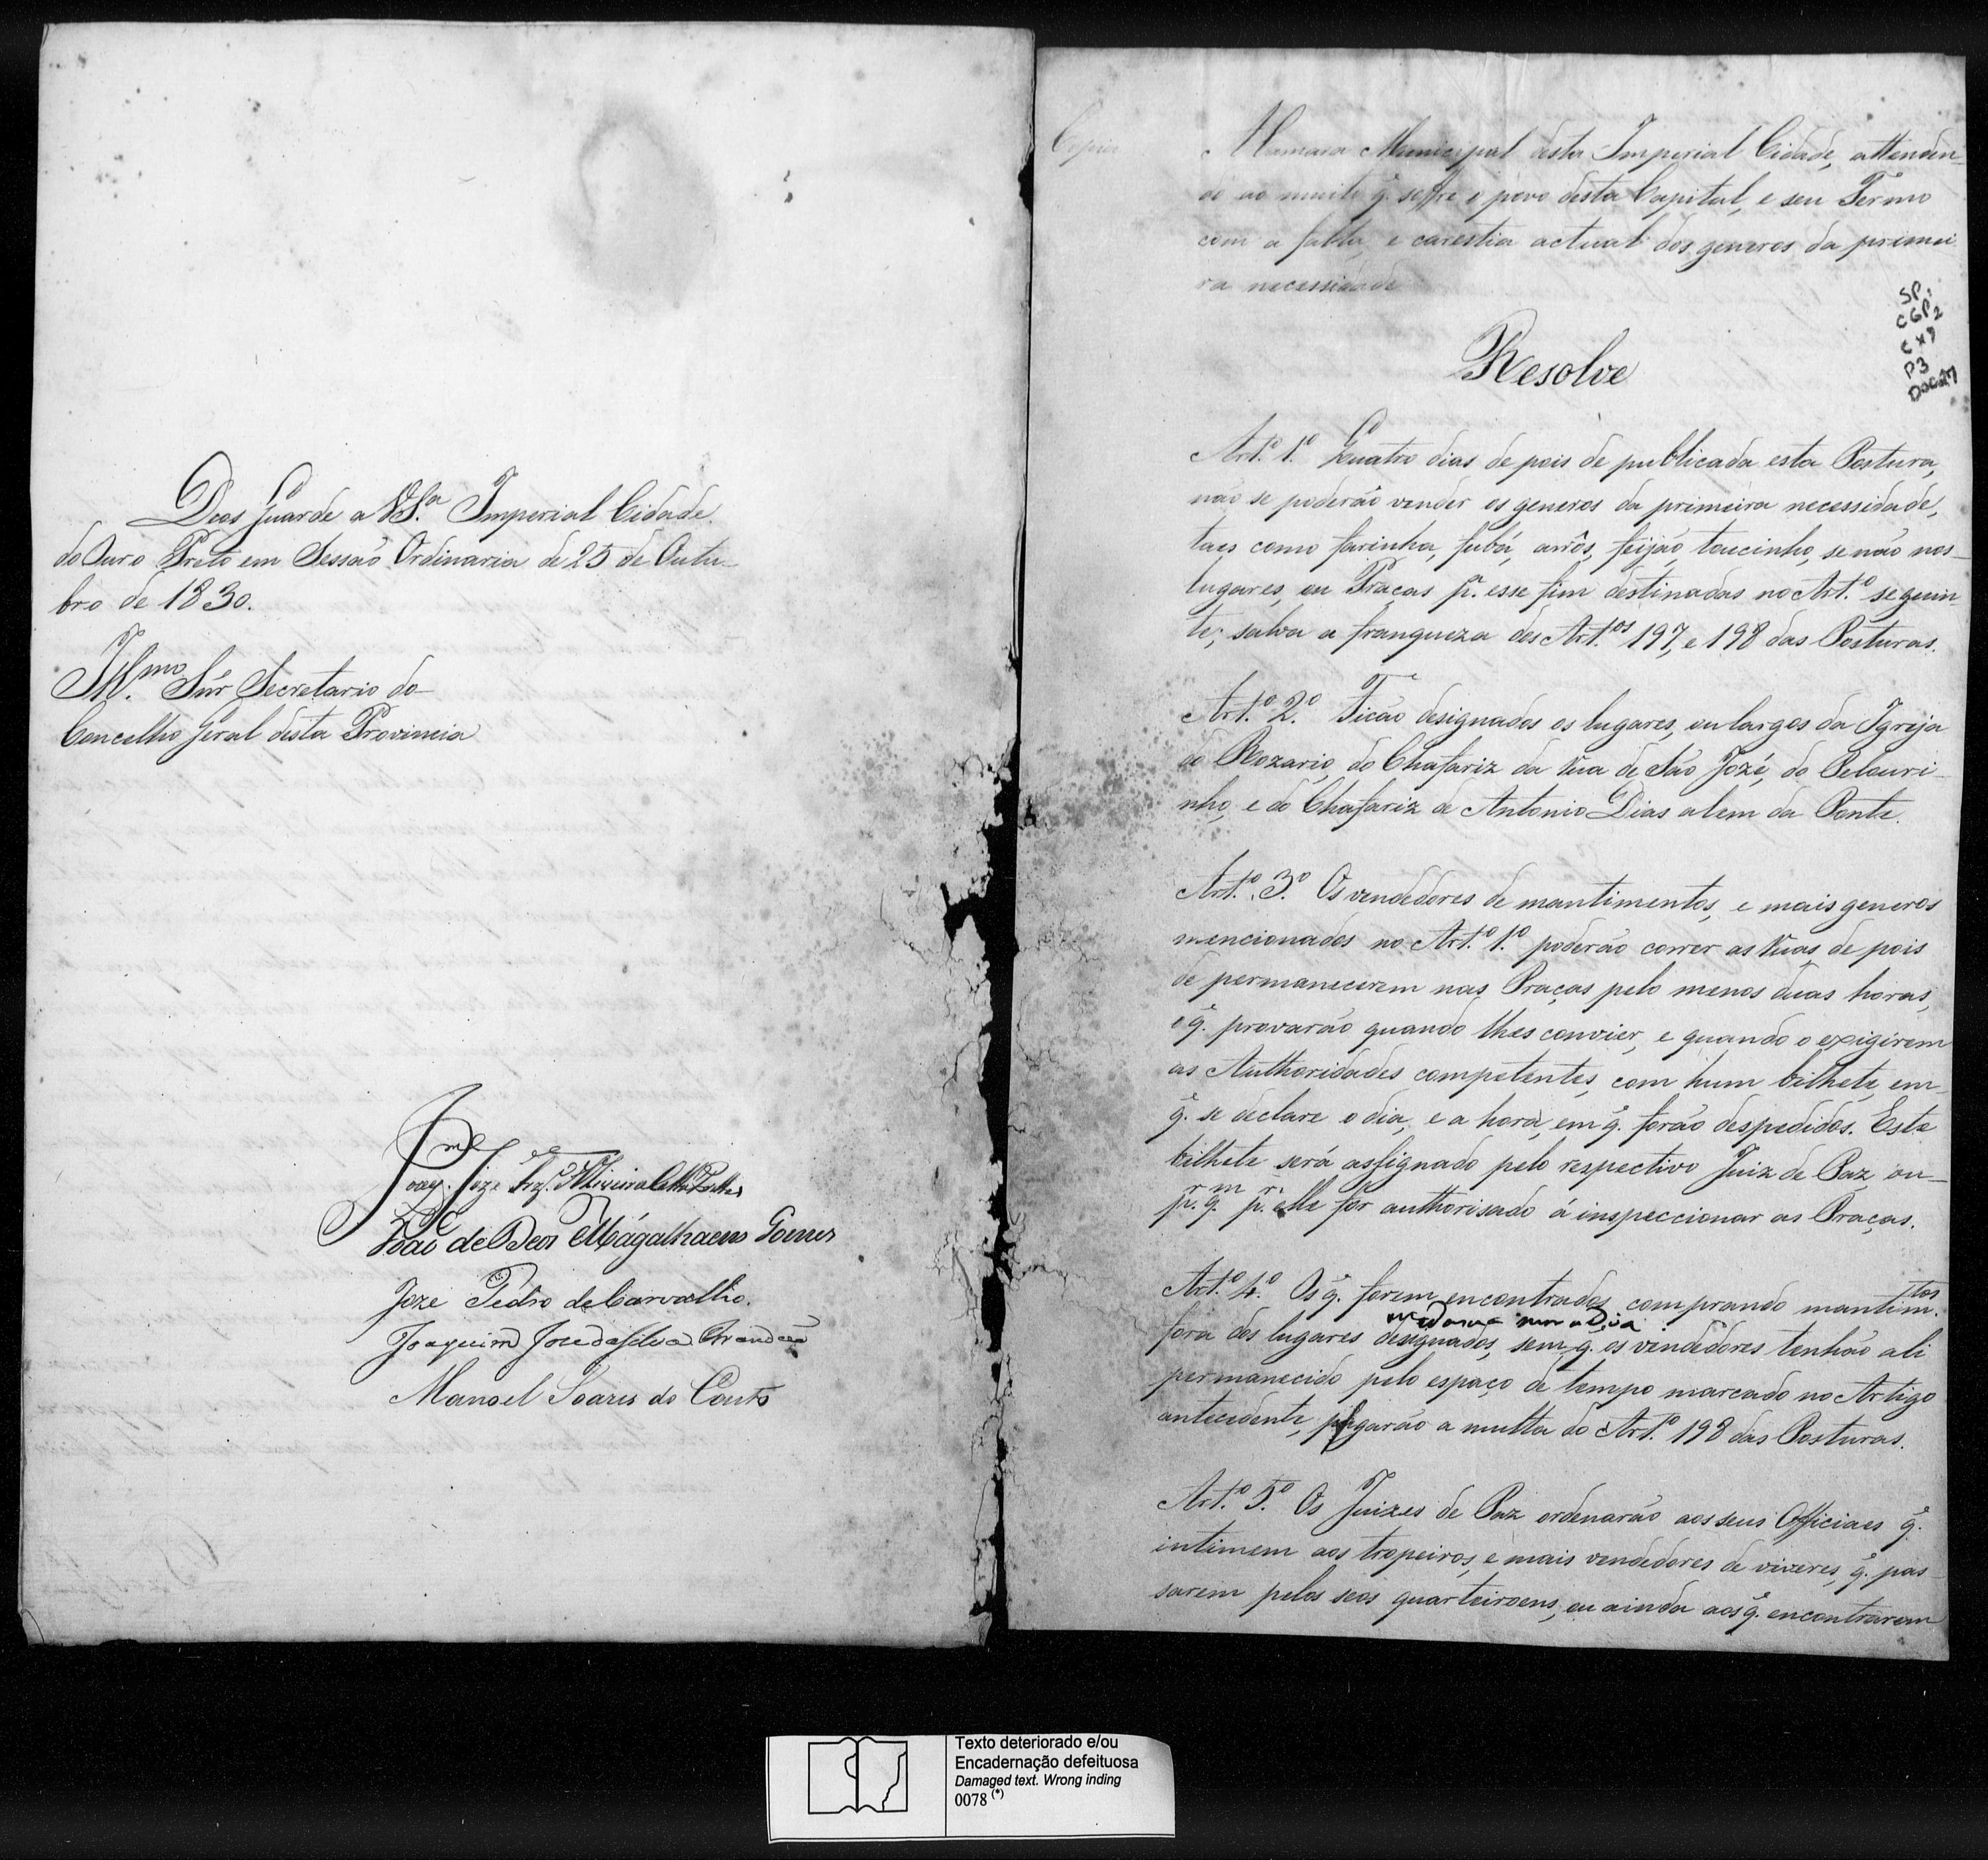 Deos Guarde a V.S.ª Imperial Cidade
do Ouro Preto em Sessão Ordinaria de 25 de Outu-
bro de 1830.
Ill.mo Snr Secretario do
Concelho Geral desta Provincia
João de Deos Magalhaens Gomes
Joze Pedro de Carvalho.
Joaquim Jose da Silva Brandão
Manoel Soares do Couto
Copia
A Camara Municipal desta Imperial Cidade, attenden-
do ao muito q. soffre o povo desta Capital, e seu Termo
com a falta, e carestia actual dos generos da primei-
ra necessidade
Resolve
SP
CGP2
CX9
P3
Art.º 1.º Quatro dias de pois de publicada esta Postura,
não se poderão vender os generos da primeira necessidade,
taes como farinha, fubá, arrôs, feijão, toucinho, se não nos
lugares, ou Praças p.ª esse fim destinadas no Art.º seguin-
te; salva a franqueza dos Art.os 197, e 198 das Posturas.
Art.º 2.º Ficão designados os lugares, ou largos da Igreja
do Rozario, do Chafariz da Rua de São Jozé, do Pelouri-
nho, e do Chafariz de Antonio Dias alem da Ponte.
Art.º 3.º Os vendedores de mantimentos, e mais generos
mencionados no Art.º 1.º poderão correr as Ruas de pois
de permanecerem nas Praças pelo menos duas horas,
o q. provarão quando lhes convier, e quando o exigirem
as Authoridades competentes, com hum bilhete, em-
q. se declare o dia, e a hora, em q. forão despedidos. Este
bilhete será assignado pelo respectivo Juiz de Paz, ou-
p.r q.m p.r elle for authorisado á inspeccionar as Praças.
Art.º 4.º Os q. forem encontrados comprando mantim.tos
fora dos lugares designados, sem q. os vendedores tenhão ali
permanecido pelo espaço de tempo marcado no Artigo
antecedente, pagarão a multa do Art.º 198 das Posturas.
Art.º 5.º Os Juizes de Paz ordenarão aos seus Officiaes q.
intimem aos tropeiros, e mais vendedores de viveres, q. pas-
sarem pelos seos quarteiroens, ou ainda aos q. encontrarem
Texto deteriorado e/ou
Encadernação defeituosa
Damaged text. Wrong inding
0078 (*)